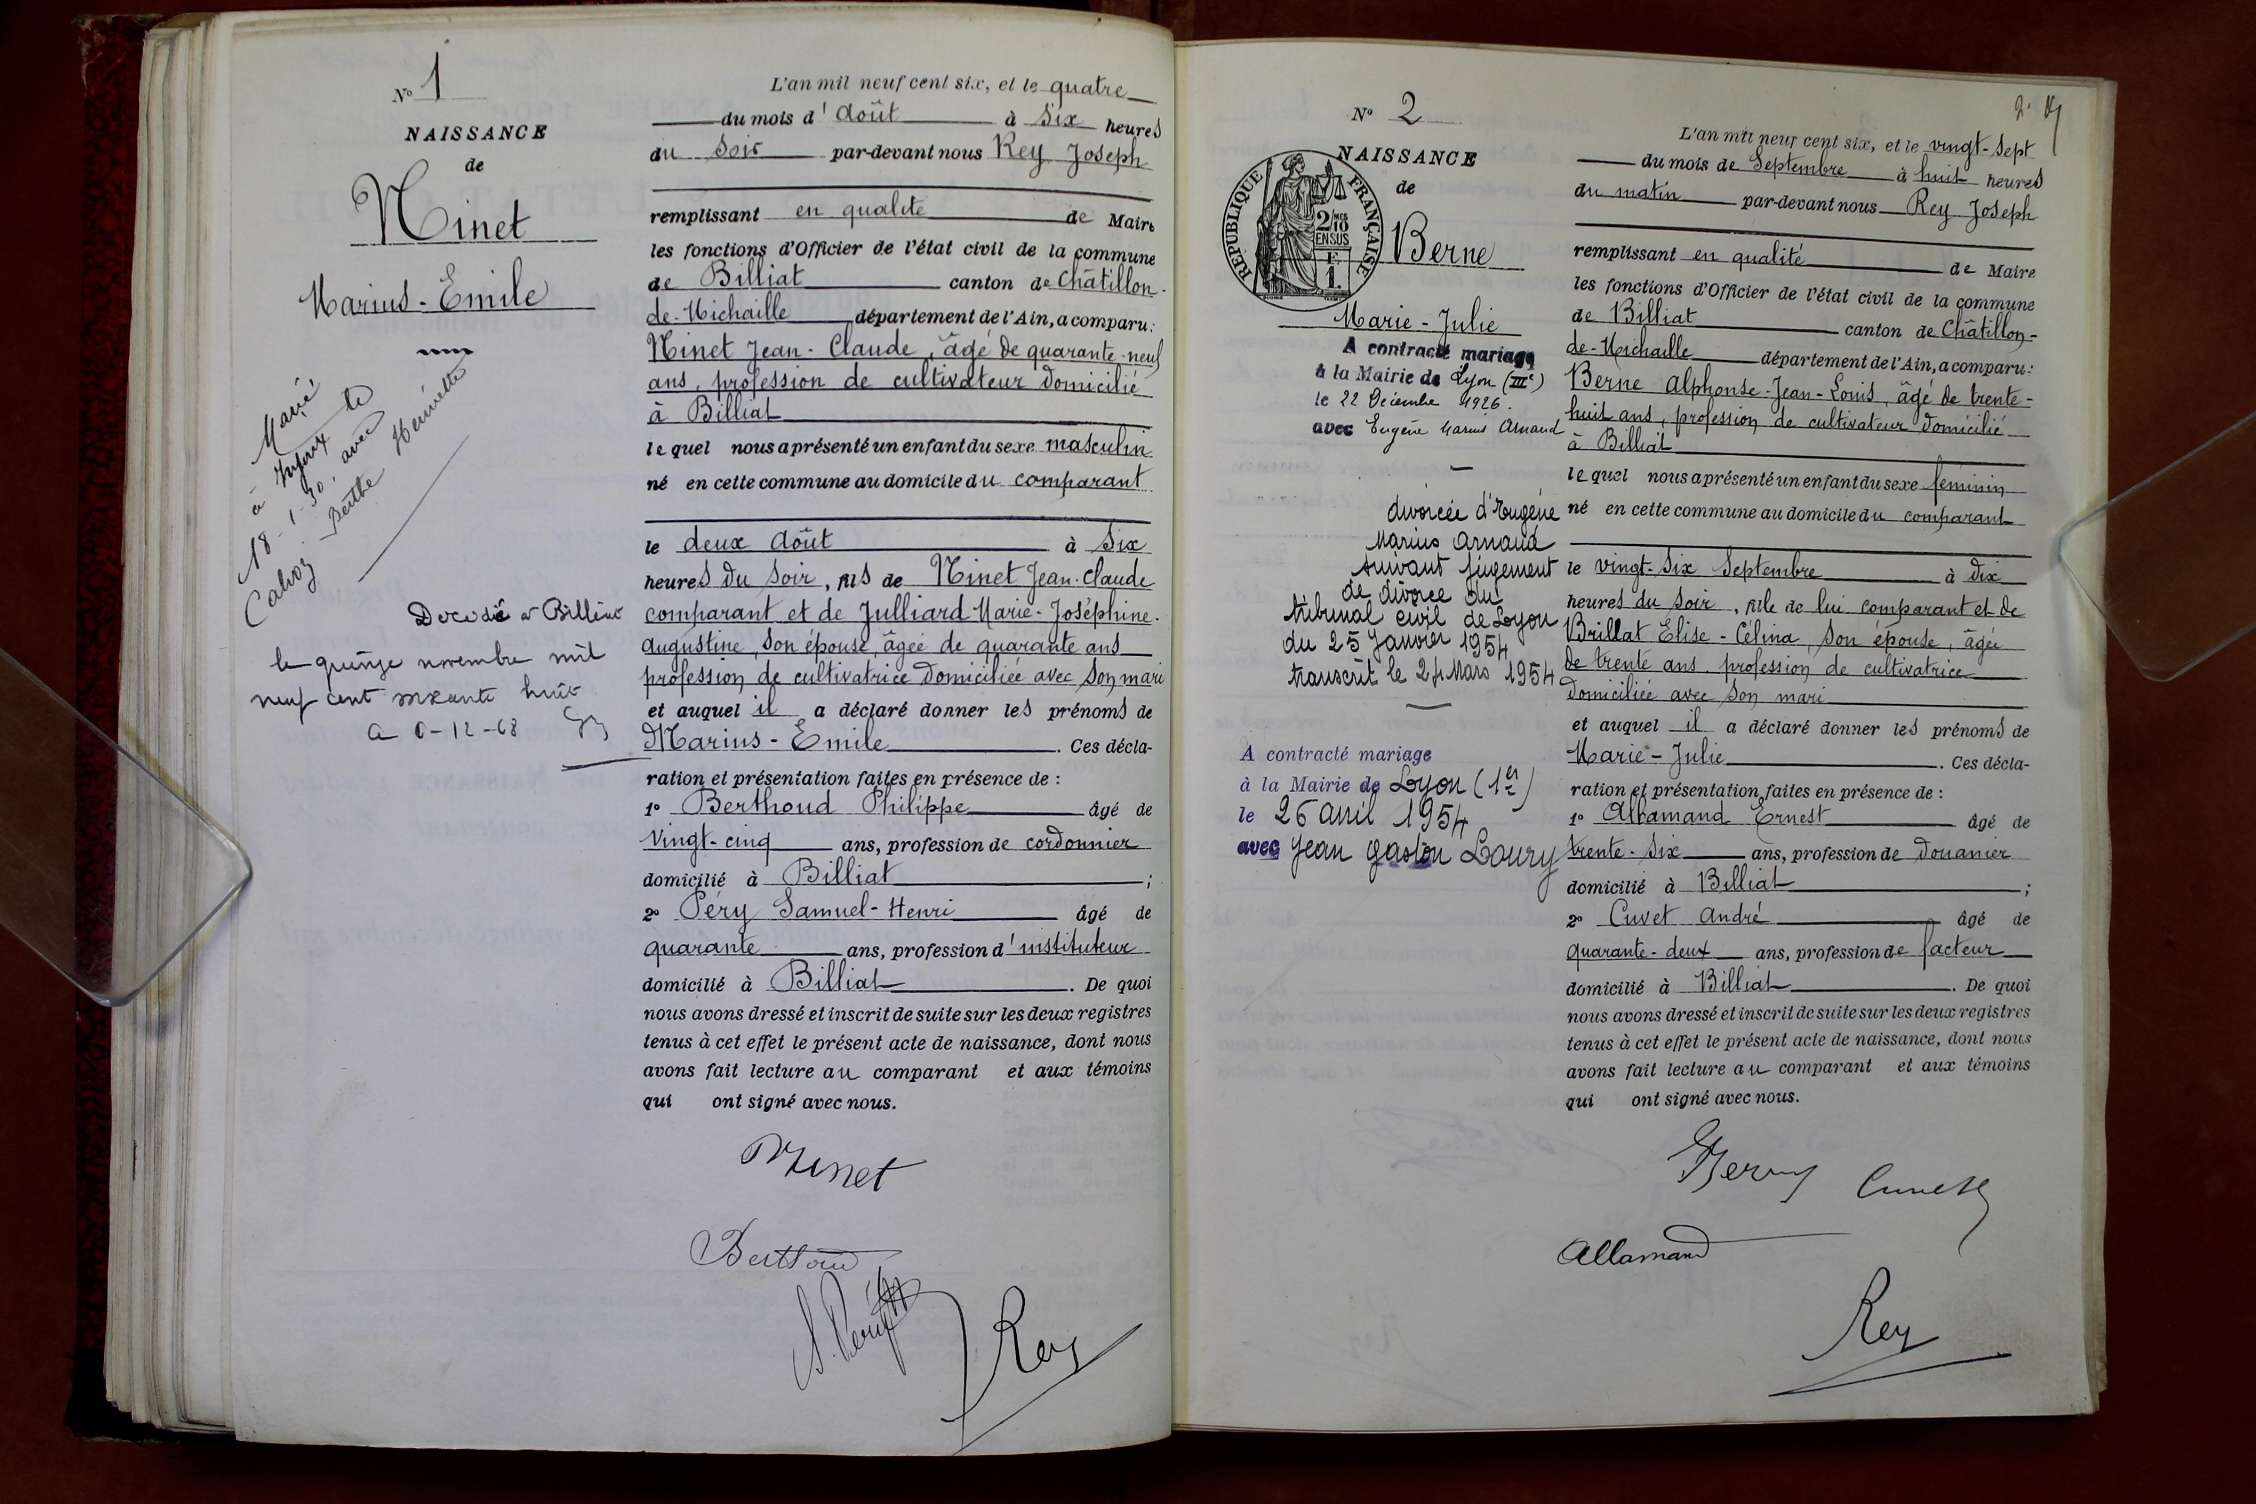 No 1
NAISSANCE
de
Ninet
Marius-Emile
Marié
à Injoux le
18-1-30. avec
Calvoz Berthe Henriette
Decedé a Billiat
le quinze novembre mil
neuf cent soixante huit
L'an mil neuf cent six, et le quatre
du mois d'Août à Six heures
du Soir par-devant nous Rey Joseph
remplissant en qualité de Maire
les fonctions d'Officier de l'état civil de la commune
de Billiat canton de Châtillon-
de-Michaille département de l'Ain, a comparu:
Ninet Jean-Claude, âgé de quarante-neuf
ans, profession de cultivateur domicilié
à Billiat
lequel nous a présenté un enfant du sexe masculin
né en cette commune au domicile du comparant
le deux Août à Six
heures du Soir, fils de Ninet Jean-Claude
comparant et de Julliard Marie-Joséphine-
Augustine, son épouse, âgée de quarante ans
profession de cultivatrice domiciliée avec son mari
et auquel il a déclaré donner les prénoms de
Marius-Emile. Ces décla-
ration et présentation faites en présence de :
1º Berthoud Philippe âgé de
vingt-cinq ans, profession de cordonnier
domicilié à Billiat ;
2º Péry Samuel-Henri âgé de
quarante ans, profession d'instituteur
domicilié à Billiat. De quoi
nous avons dressé et inscrit de suite sur les deux registres
tenus à cet effet le présent acte de naissance, dont nous
avons fait lecture au comparant et aux témoins
qui ont signé avec nous.
Ninet
Berthoud
S. Péry
Rey
2.
No 2
NAISSANCE
de
RÉPUBLIQUE FRANÇAISE
2/10 MES
EN SUS
F.
1.
Berne
Marie-Julie
A contracté mariage
à la Mairie de Lyon (IIIe)
le 22 Décembre 1926.
avec Eugène Marius Arnaud
divorcée d'Eugène
Marius Arnaud
suivant jugement
de divorce du
tribunal civil de Lyon
du 25 Janvier 1954
transcrit le 24 Mars 1954
A contracté mariage
à la Mairie de Lyon (1er)
le 26 avril 1954
avec Jean Gaston Loury
L'an mil neuf cent six, et le vingt-sept
du mois de Septembre à huit heures
du matin par-devant nous Rey Joseph
remplissant en qualité de Maire
les fonctions d'Officier de l'état civil de la commune
de Billiat canton de Châtillon-
de-Michaille département de l'Ain, a comparu:
Berne Alphonse-Jean-Louis, âgé de trente-
huit ans, profession de cultivateur domicilié
à Billiat
lequel nous a présenté un enfant du sexe féminin
né en cette commune au domicile du comparant
le vingt-six Septembre à dix
heures du Soir, fille de lui comparant et de
Brillat Elise-Célina, son épouse, âgée
de trente ans, profession de cultivatrice
domiciliée avec son mari
et auquel il a déclaré donner les prénoms de
Marie-Julie. Ces décla-
ration et présentation faites en présence de :
1º Allamand Ernest âgé de
trente-six ans, profession de douanier
domicilié à Billiat ;
2º Cuvet André âgé de
quarante-deux ans, profession de facteur
domicilié à Billiat. De quoi
nous avons dressé et inscrit de suite sur les deux registres
tenus à cet effet le présent acte de naissance, dont nous
avons fait lecture au comparant et aux témoins
qui ont signé avec nous.
Berne Cuvet
Allamand
Rey